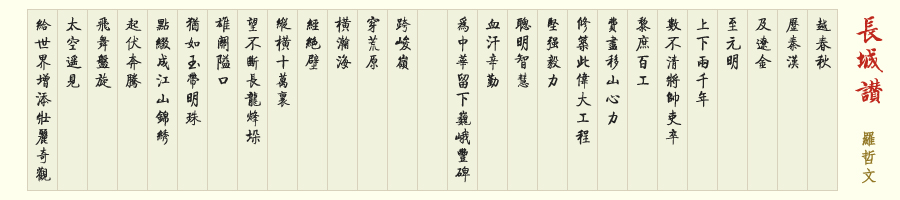 長城讚
羅哲文
越春秋
歷秦漢
及遼金
至元明
上下兩千年
數不清將帥吏卒
黎庶百工
費盡移山心力
修築此偉大工程
堅强毅力
聰明智慧
血汗辛勤
為中華留下巍峨豐碑
跨峻嶺
穿荒原
橫瀚海
經絕壁
縱橫十萬裏
望不斷長龍烽垛
雄關隘口
猶如玉帶明珠
點綴成江山錦綉
起伏奔騰
飛舞盤旋
太空遥見
給世界增添壯麗奇觀